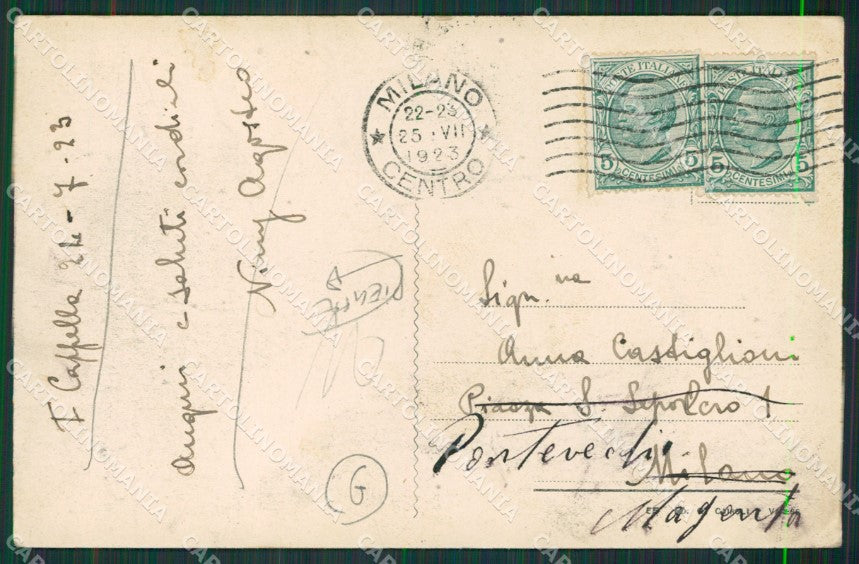 F Cappella 24-7-23
auguri e saluti cordiali
Nang Agosteo
PIENNE
G
MILANO
22-23
25·VII
1923
CENTRO
POSTE ITALIANE
5 5
CENTESIMI
5 5
CENTESIMI
Sign.ina
Anna Castiglioni
Piazza S. Sepolcro 1
Milano
Pontevecchio
Magenta
CARTOLINOMANIA